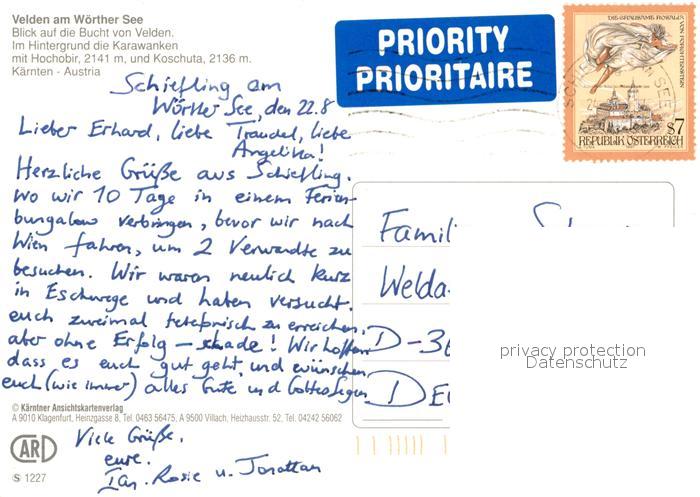 Velden am Wörther See
Blick auf die Bucht von Velden.
Im Hintergrund die Karawanken
mit Hochobir, 2141 m, und Koschuta, 2136 m.
Kärnten - Austria
PRIORITY
PRIORITAIRE
DIE GRAUSAME ROSALIA VON FORCHTENSTEIN
S7
REPUBLIK ÖSTERREICH
Schiefling am
Wörther See, den 22.8
Lieber Erhard, liebe Traudel, liebe
Angelika!
Herzliche Grüße aus Schiefling.
wo wir 10 Tage in einem Ferien-
bungalow verbringen, bevor wir nach
Wien fahren, um 2 Verwandte zu
besuchen. Wir waren neulich kurz
in Eschwege und haben versucht.
euch zweimal telefonisch zu erreichen,
aber ohne Erfolg – schade! Wir hoffen
dass es euch gut geht, und wünschen
euch (wie immer) alles Gute und Gottes Segen.
Viele Grüße,
eure.
Ian, Rosie u. Jonathan
Famil
Welda
D-36
DE
privacy protection
Datenschutz
© Kärntner Ansichtskartenverlag
A 9010 Klagenfurt, Heinzgasse 8, Tel. 0463 56475, A 9500 Villach, Heizhausstr. 52, Tel. 04242 56062
CARD
S 1227